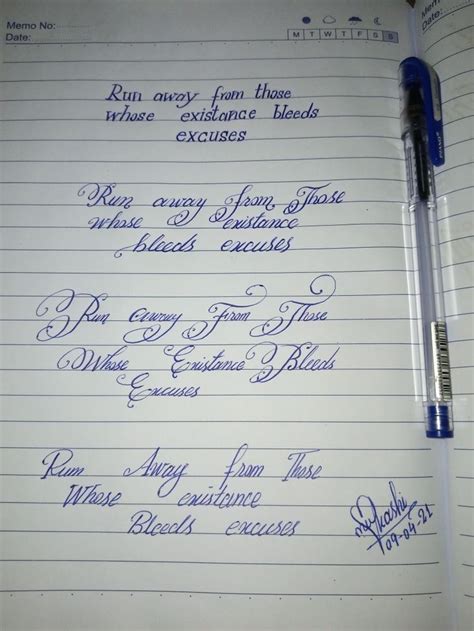 Memo No:
Date:
M T W T F S S
Memo No:
Date:
Run away from those
whose existance bleeds
excuses
Run away from Those
whose existance
bleeds excuses
Run away From Those
Whose Existance Bleeds
Excuses
Run Away from Those
Whose existance
Bleeds excuses
09-04-21